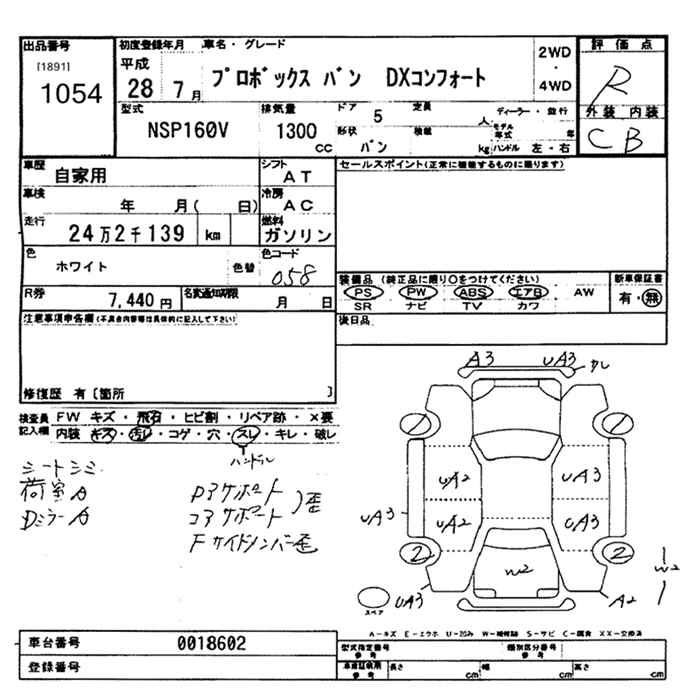 出品番号 初度登録年月 車名・グレード 2WD ・ 4WD 評価点
[1891]
1054
平成 28年 7月 プロボックス バン DXコンフォート R
型式 NSP160V 排気量 1300 cc ドア 5 定員 人 ディーラー・並行
形状 バン 積載 kg モデル年式 年 ハンドル 左・右
外装 内装
C B
車歴 自家用 シフト AT セールスポイント(正常に機能するものに限ります)
車検 年 月( 日) 冷房 AC
走行 24万2千139 km 燃料 ガソリン
色 ホワイト 色替 色コード 058
装備品 (純正品に限り○をつけてください) 新車保証書
PS PW ABS エアB AW 有・無
SR ナビ TV カワ
R券 7,440円 名変通知期限 月 日
後日品
注意事項申告欄(不具合内容等は具体的に記入して下さい)
修復歴 有〔箇所 〕
検査員記入欄 FW キズ・飛石・ヒビ割・リペア跡・×要
内装 キズ・汚レ・コゲ・穴・スレ・キレ・破レ
ハンドル
シートシミ
荷室A
Dミラー A
Pアサポート
コアサポート
歪
Fサイドメンバー歪
A3 UA3
UA2 UA3
UA3 UA2 UA3
2 2
W2 W2
UA3 A2
スペア
A-キズ E-エクボ U-凹み W-補修跡 S-サビ C-腐食 XX-交換済
車台番号 0018602
登録番号
型式指定番号 参考 類別区分番号 参考
車検証記載 参考 長さ cm 幅 cm 高さ cm